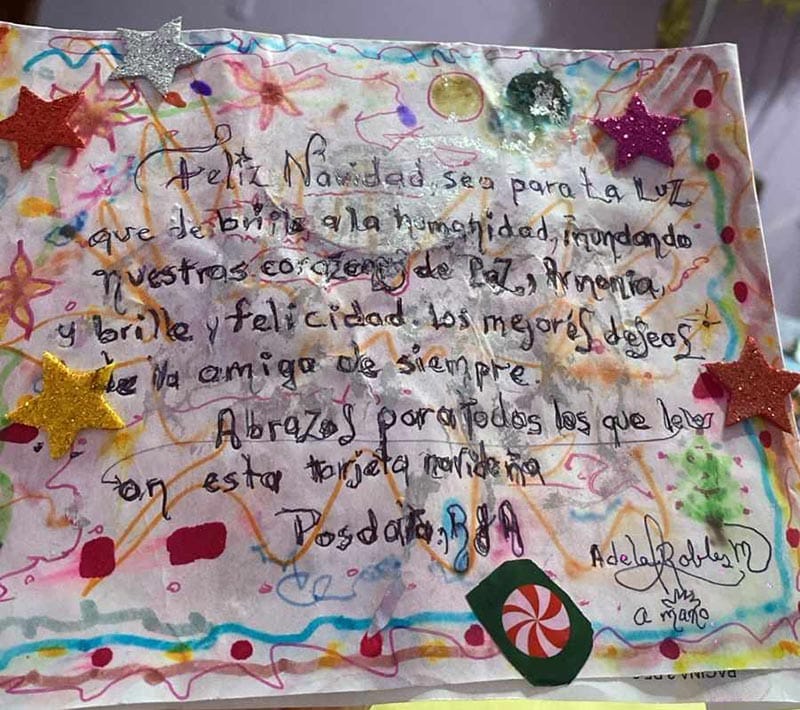 Feliz Navidad, sea para La Luz
que le brille a la humanidad, inundando
nuestras corazones de Paz, Armonia,
y brille y felicidad. Los mejores deseos
de la amiga de siempre.
Abrazos para Todos los que
en esta tarjeta navideña
Posdata,
Adela Robles M
a mano